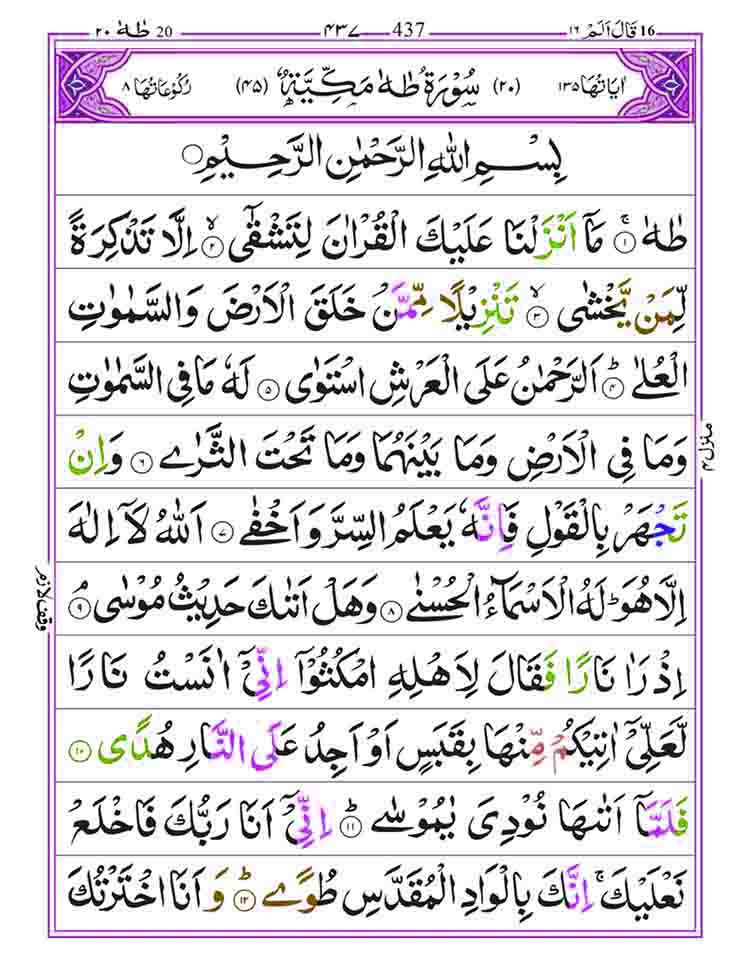 16 قَالَ اَلَمْ ١٦
437 ٤٣٧
20 طٰهٰ ٢٠
اٰيَاتُهَا ١٣٥ (٢٠) سُوْرَةُ طٰهٰ مَكِّيَّةٌ (٤٥) رُكُوْعَاتُهَا ٨
بِسْمِ اللّٰهِ الرَّحْمٰنِ الرَّحِيْمِ ۝
طٰهٰ ۚ﴿١﴾ مَاۤ اَنْزَلْنَا عَلَيْكَ الْقُرْاٰنَ لِتَشْقٰٓى ۙ﴿٢﴾ اِلَّا تَذْكِرَةً
لِّمَنْ يَّخْشٰى ۙ﴿٣﴾ تَنْزِيْلًا مِّمَّنْ خَلَقَ الْاَرْضَ وَالسَّمٰوٰتِ
الْعُلٰے ؕ﴿٤﴾ اَلرَّحْمٰنُ عَلَى الْعَرْشِ اسْتَوٰى ﴿٥﴾ لَهٗ مَا فِى السَّمٰوٰتِ
وَمَا فِى الْاَرْضِ وَمَا بَيْنَهُمَا وَمَا تَحْتَ الثَّرٰے ﴿٦﴾ وَاِنْ
تَجْهَرْ بِالْقَوْلِ فَاِنَّهٗ يَعْلَمُ السِّرَّ وَاَخْفٰے ﴿٧﴾ اَللّٰهُ لَاۤ اِلٰهَ
اِلَّا هُوَ ؕ لَهُ الْاَسْمَآءُ الْحُسْنٰے ﴿٨﴾ وَهَلْ اَتٰىكَ حَدِيْثُ مُوْسٰى ۘ﴿٩﴾
اِذْ رَاٰ نَارًا فَقَالَ لِاَهْلِهِ امْكُثُوْۤا اِنِّىْۤ اٰنَسْتُ نَارًا
لَّعَلِّىْۤ اٰتِيْكُمْ مِّنْهَا بِقَبَسٍ اَوْ اَجِدُ عَلَى النَّارِ هُدًى ﴿١٠﴾
فَلَمَّاۤ اَتٰىهَا نُوْدِىَ يٰمُوْسٰے ؕ﴿١١﴾ اِنِّىْۤ اَنَا رَبُّكَ فَاخْلَعْ
نَعْلَيْكَ ۚ اِنَّكَ بِالْوَادِ الْمُقَدَّسِ طُوًے ؕ﴿١٢﴾ وَ اَنَا اخْتَرْتُكَ
منزل ٤
وقف لازم